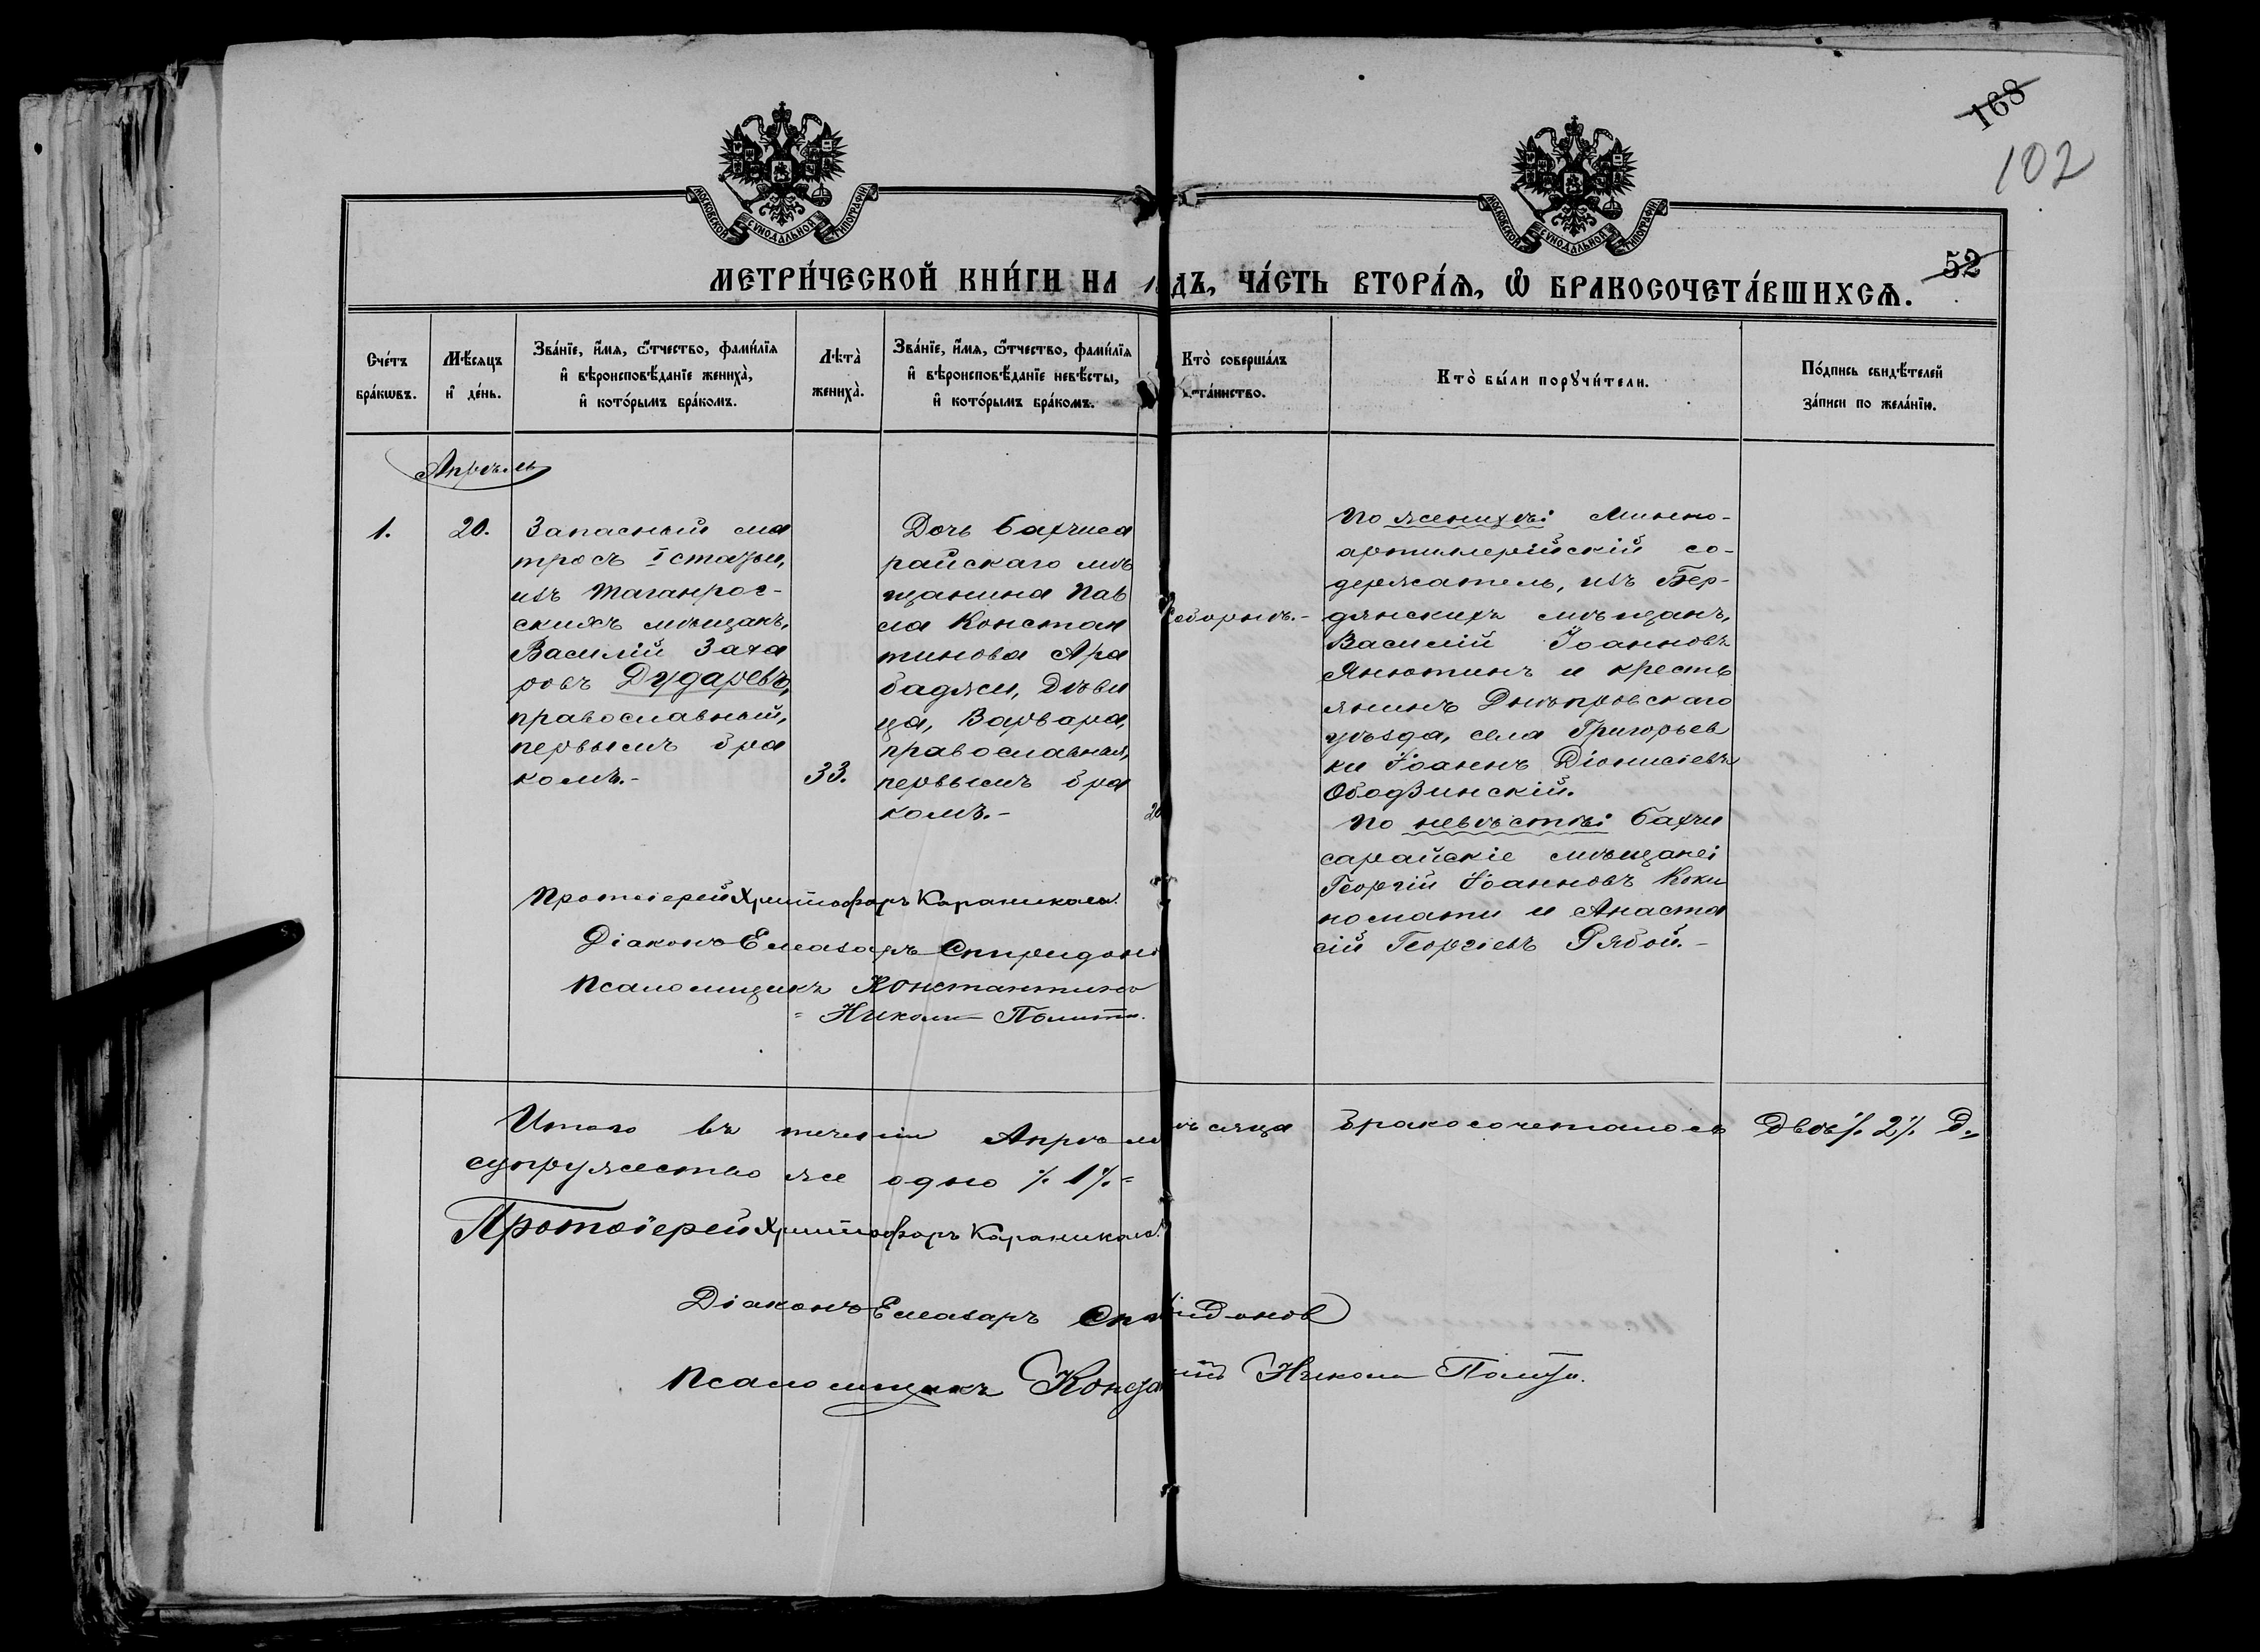 168
102
52
МОСКОВСКОЙ СѴНОДАЛЬНОЙ ТИПОГРАФІИ
МОСКОВСКОЙ СѴНОДАЛЬНОЙ ТИПОГРАФІИ
МЕТРИ́ЧЕСКОЙ КНИ́ГИ НА 1 ДЪ, ЧА́СТЬ ВТОРА́Ѧ, Ѽ БРАКОСОЧЕТА́ВШИХСѦ.
Сче́тъ бра́кѡвъ.
Мѣ́сяцъ и҆ де́нь.
Зва́нїе, и҆́мѧ, ѻ҆́тчество, фами́лїѧ и҆ вѣроисповѣ́данїе жениха̀, и҆ кото́рымъ бра́комъ.
Лѣта̀ жениха̀.
Зва́нїе, и҆́мѧ, ѻ҆́тчество, фами́лїѧ и҆ вѣроисповѣ́данїе невѣ́сты, и҆ кото́рымъ бра́комъ.
Кто̀ соверша́лъ та́инство.
Кто̀ бы́ли порꙋчи́тели.
По́дпись свидѣ́телей за́писи по жела́нїю.
Апрѣль
1.
20.
Запасный ма
тросъ I статьи,
изъ Таганрог-
скихъ мѣщанъ,
Василій Заха
ровъ Дударевъ,
православный,
первымъ бра
комъ.-
33.
Дочь бахчиса
райскаго мѣ
щанина Пав
ла Констан
тинова Ара
баджи, дѣви
ца, Варвара,
православная,
первымъ бра
комъ.-
20
Соборнѣ.-
По женихѣ: Минно-
артиллерійскій со-
держатель, изъ Бер-
дянскихъ мѣщанъ,
Василій Іоанновъ
Янютинъ и кресть
янинъ Днѣпровскаго
уѣзда, села Григорьев
ки Іоаннъ Діонисіевъ
Ободзинскій.
По невѣстѣ: бахчи
сарайскіе мѣщане:
Георгій Іоанновъ Коки
номати и Анаста
сій Георгіевъ Рябой.-
Протоіерей Христофоръ Караникола.
Діаконъ Елеазаръ Спиридоно
Псаломщикъ Константинъ
Никола Полити.
Итого въ теченіи Апрѣля мѣсяца бракосочеталось двѣ ⁒ 2 ⁒ д.,
супружество же одно ⁒ 1 ⁒ =
Протоіерей Христофоръ Караникола.
Діаконъ Елеазаръ Спиридонов
Псаломщикъ Никола Полити.